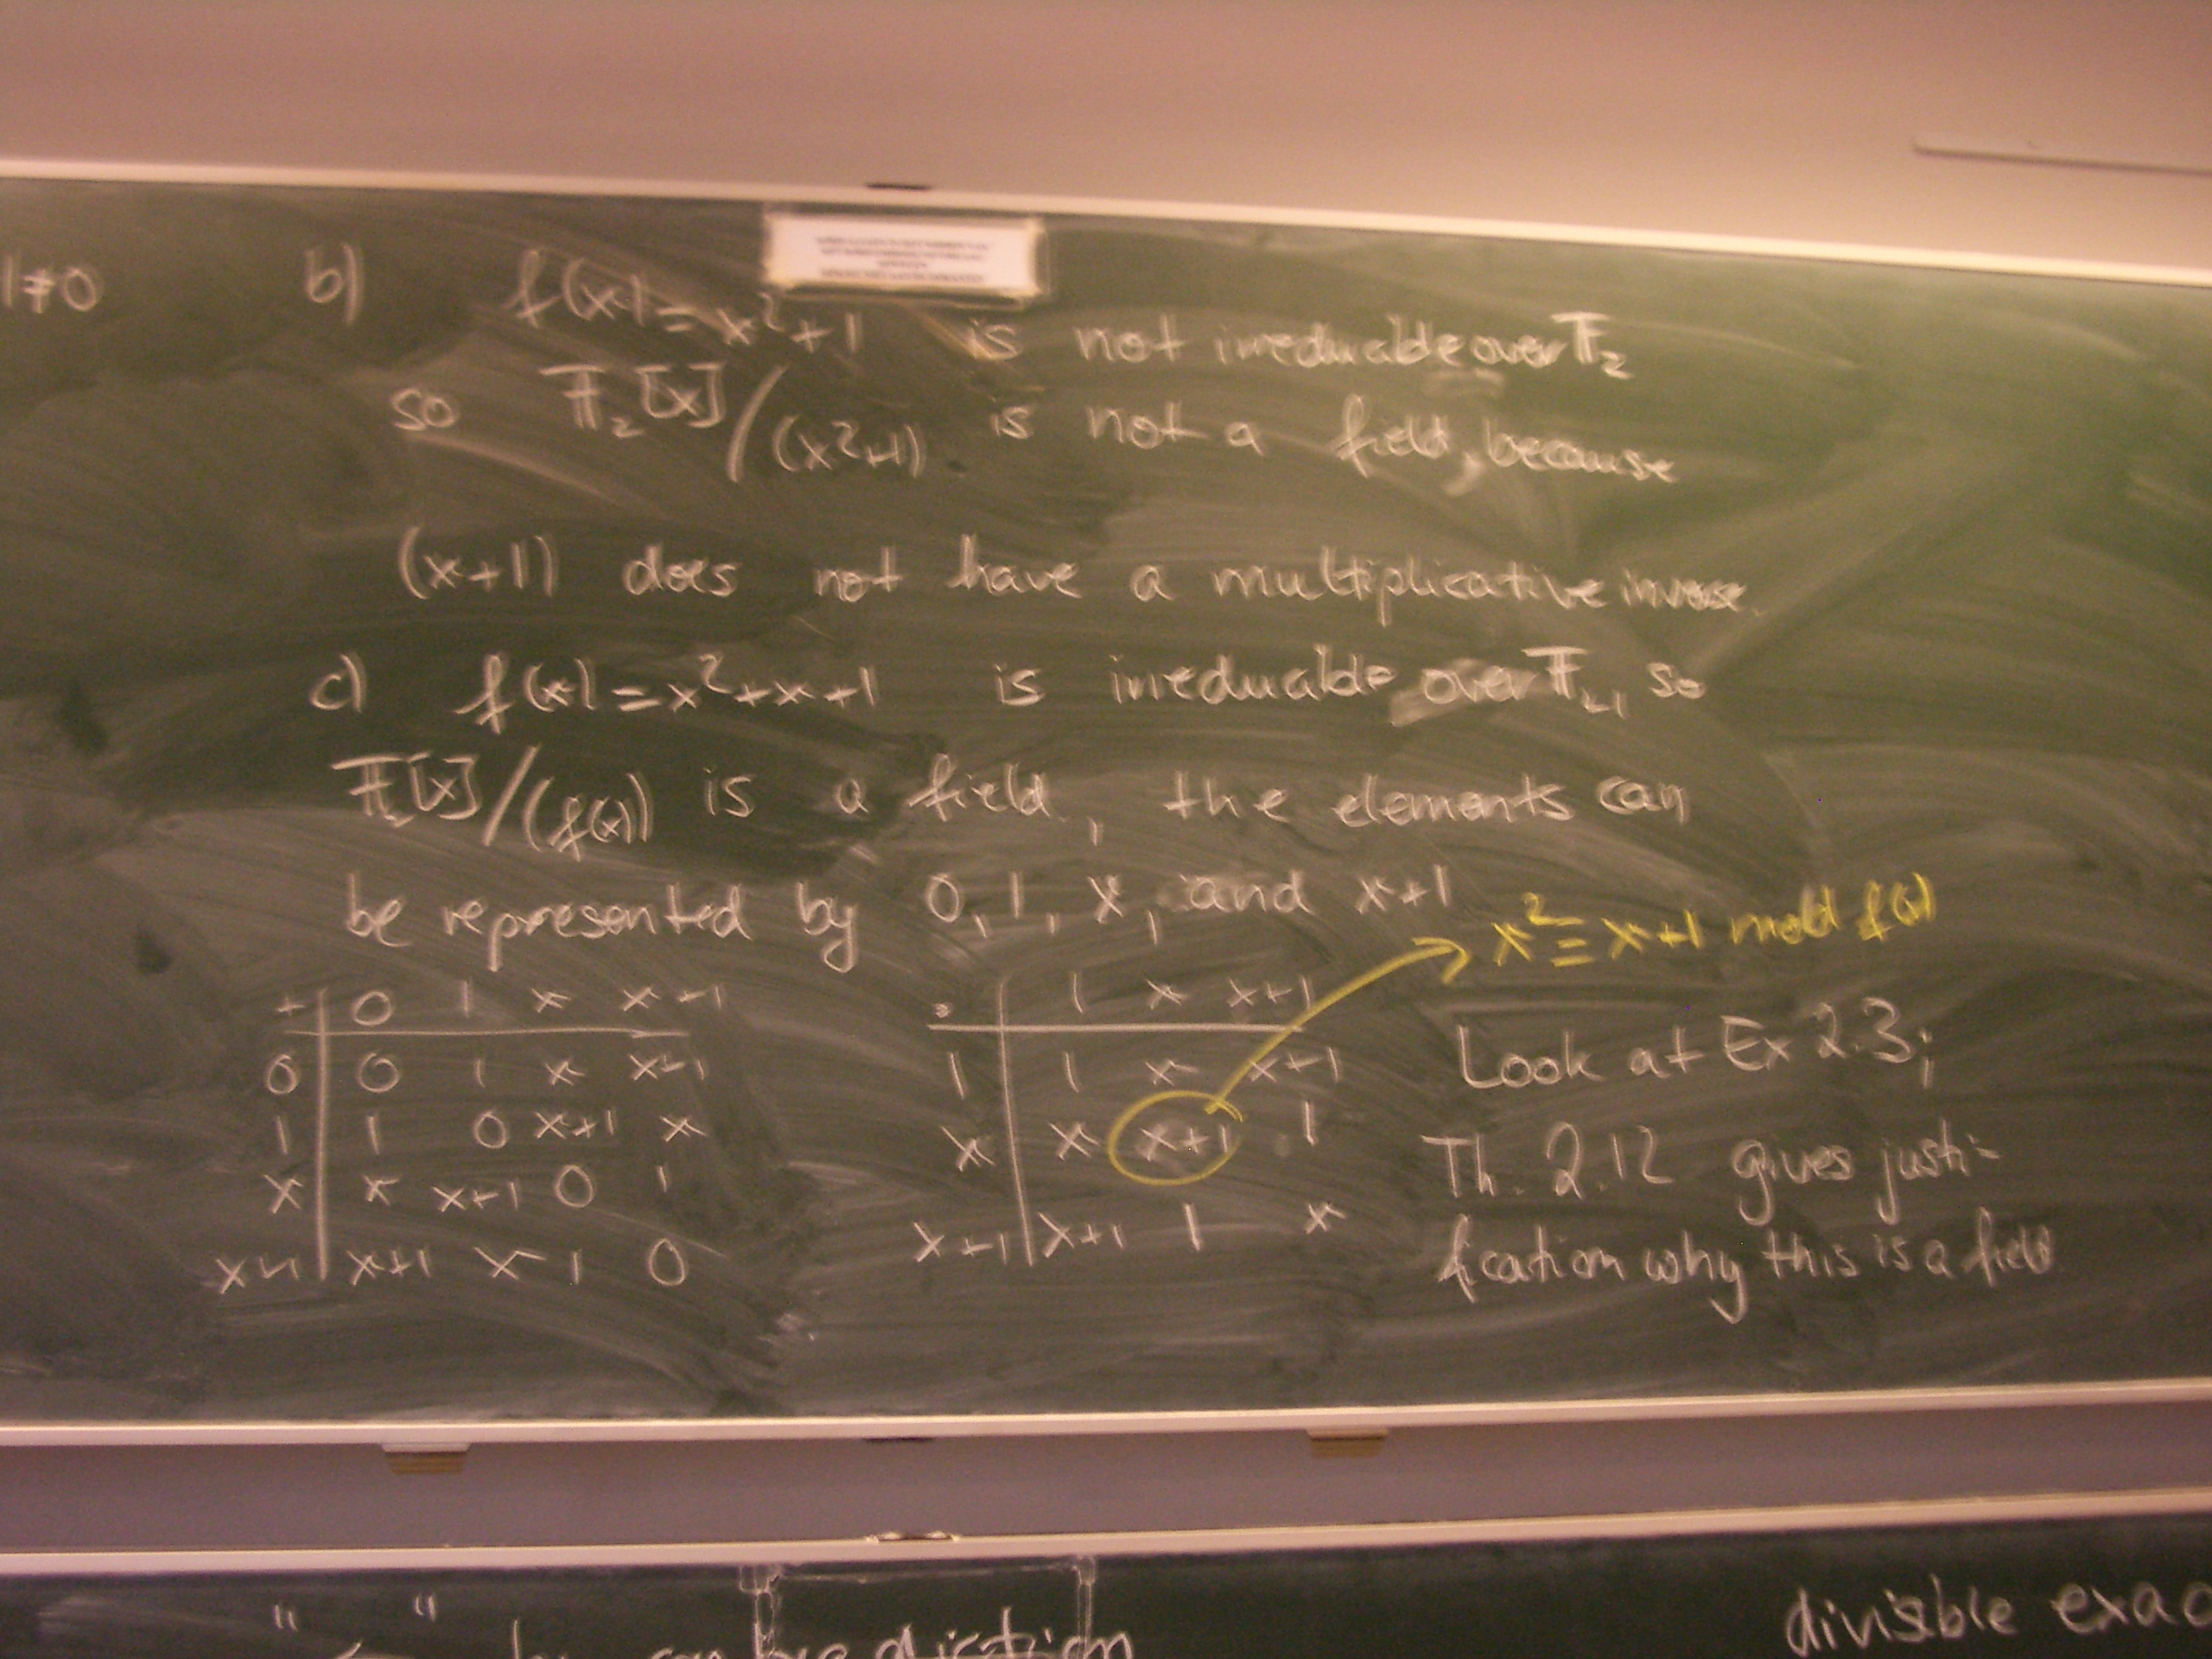 1≠0
b) f(x)=x²+1 is not irreducable over F₂
so F₂[x]/(x²+1) is not a field, because
(x+1) does not have a multiplicative inverse.
c) f(x)=x²+x+1 is irreducable over F₂, so
F₂[x]/(f(x)) is a field, the elements can
be represented by 0, 1, x, and x+1
x² ≡ x+1 mod f(x)
+ 0 1 x x+1
0 0 1 x x+1
1 1 0 x+1 x
x x x+1 0 1
x+1 x+1 x 1 0
· 1 x x+1
1 1 x x+1
x x x+1 1
x+1 x+1 1 x
Look at Ex 2.3;
Th. 2.12 gives justi-
fication why this is a field
divisble exac